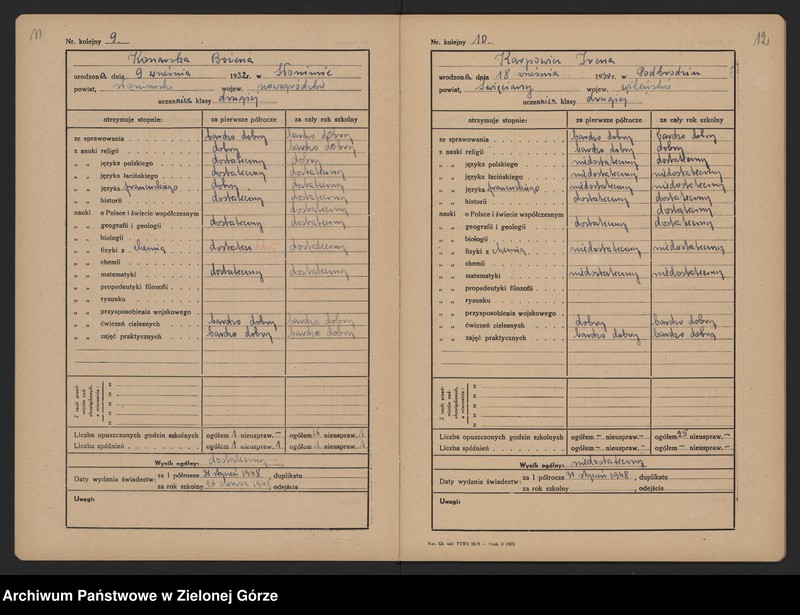 11
Nr. kolejny 9.
Konarska Bożena
urodzona dnia 9 września 1932 r. w Słonimie
powiat, słonimski wojew. nowogródzkie
uczennica klasy drugiej
otrzymuje stopnie: za pierwsze półrocze za cały rok szkolny
ze sprawowania bardzo dobry bardzo dobry
z nauki religii dobry bardzo dobry
„ „ języka polskiego dostateczny dobry
„ „ języka łacińskiego dostateczny dostateczny
„ „ języka francuskiego dobry dostateczny
„ „ historii dostateczny dostateczny
nauki o Polsce i świecie współczesnym dostateczny
„ „ geografii i geologii dostateczny dostateczny
„ „ biologii
„ „ fizyki z chemią dostateczny
„ „ chemii
„ „ matematyki dostateczny dostateczny
„ „ propedeutyki filozofii
„ „ rysunku
„ „ przysposobienia wojskowego
„ „ ćwiczeń cielesnych bardzo dobry bardzo dobry
„ „ zajęć praktycznych bardzo dobry bardzo dobry
Z nauki przedmiotów nadobowiązkowych, a mianowicie:
Liczba opuszczonych godzin szkolnych ogółem 1 nieuspraw. – ogółem 16 nieuspraw. 1
Liczba spóźnień ogółem 1 nieuspraw. 1 ogółem 1 nieuspraw. 1
Wynik ogólny: dostateczny
Daty wydania świadectw: za I półrocze 31 styczeń 1948, duplikatu
za rok szkolny 26 czerwca 1948, odejścia
Uwagi:
12
Nr. kolejny 10.
Karpowicz Irena
urodzona dnia 18 września 1934 r. w Podbrodziu
powiat, Święciany wojew. wileńskie
uczennica klasy drugiej
otrzymuje stopnie: za pierwsze półrocze za cały rok szkolny
ze sprawowania bardzo dobry bardzo dobry
z nauki religii bardzo dobry dobry
„ „ języka polskiego niedostateczny dostateczny
„ „ języka łacińskiego niedostateczny niedostateczny
„ „ języka francuskiego niedostateczny niedostateczny
„ „ historii dostateczny dostateczny
nauki o Polsce i świecie współczesnym dostateczny
„ „ geografii i geologii dostateczny dostateczny
„ „ biologii
„ „ fizyki z chemią niedostateczny niedostateczny
„ „ chemii
„ „ matematyki niedostateczny niedostateczny
„ „ propedeutyki filozofii
„ „ rysunku
„ „ przysposobienia wojskowego
„ „ ćwiczeń cielesnych dobry bardzo dobry
„ „ zajęć praktycznych bardzo dobry bardzo dobry
Z nauki przedmiotów nadobowiązkowych, a mianowicie:
Liczba opuszczonych godzin szkolnych ogółem – nieuspraw. – ogółem 25 nieuspraw. –
Liczba spóźnień ogółem – nieuspraw. – ogółem – nieuspraw. –
Wynik ogólny: niedostateczny
Daty wydania świadectw: za I półrocze 31 styczeń 1948, duplikatu
za rok szkolny, odejścia
Uwagi:
Archiwum Państwowe w Zielonej Górze